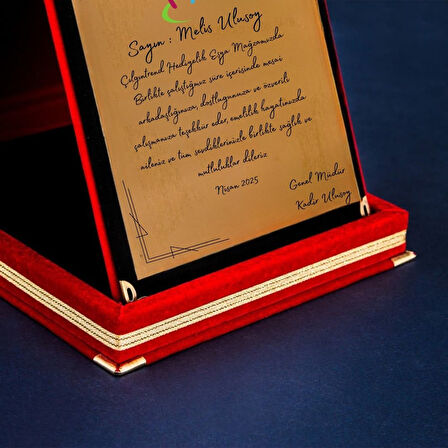 Sayın : Melis Ulusoy
Çılgıntrend Hediyelik Eşya Mağazamızda
Birlikte çalıştığınız süre içerisinde mesai
arkadaşlığınıza, dostluğunuza ve özverili
çalışmanıza teşekkür eder, emeklilik hayatınızda
aileniz ve tüm sevdiklerinizle birlikte sağlık ve
mutluluklar dileriz
Nisan 2025
Genel Müdür
Kadir Ulusoy